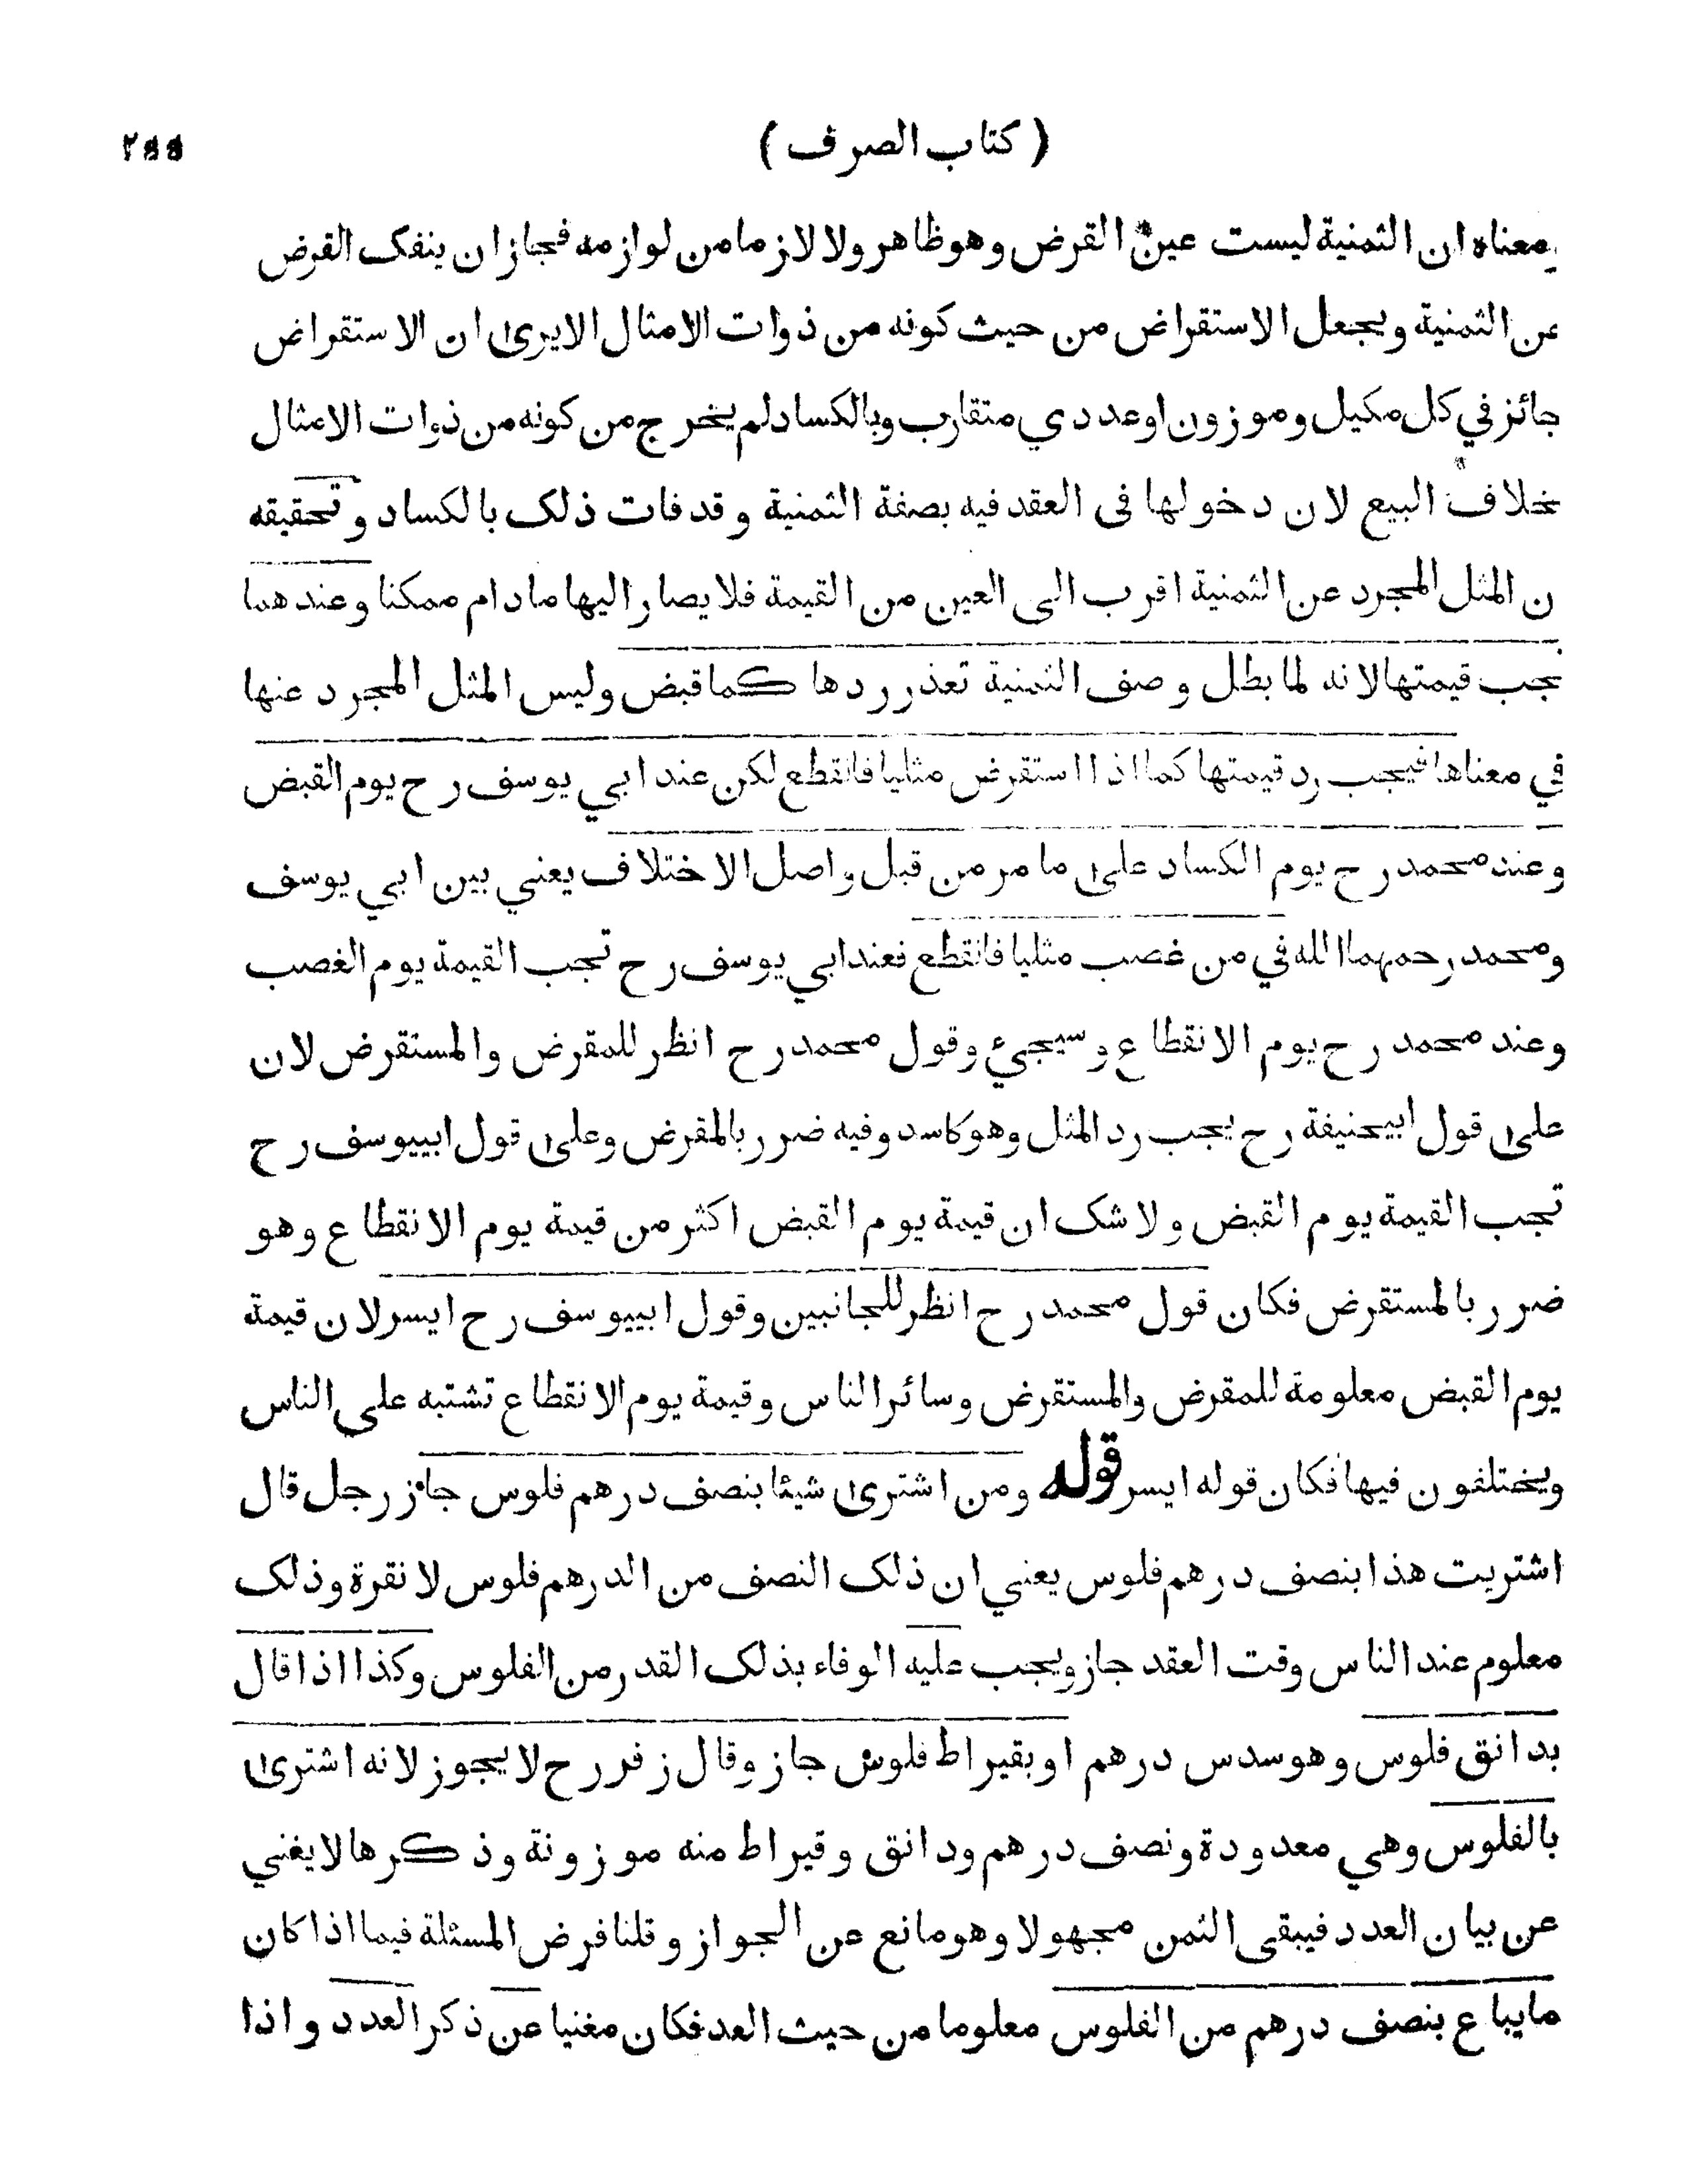 ( كتاب الصرف )
معناه ان الثمنية ليست عين القرض وهو ظاهر ولا لازما من لوازمه فجاز ان ينفک القرض
عن الثمنية ويجعل الاستقراض من حيث كونه من ذوات الامثال الا يرى ان الاستقراض
جائز في كل مكيل وموزون او عددي متقارب وبالكساد لم يخرج من كونه من ذوات الامثال
بخلاف البيع لان دخولها في العقد فيه بصفة الثمنية وقد فات ذلک بالكساد وتحقيقه
ن المثل المجرد عن الثمنية اقرب الى العين من القيمة فلا يصار اليها ما دام ممكنا وعندهما
تجب قيمتها لانه لما بطل وصف الثمنية تعذر ردها كما قبض وليس المثل المجرد عنها
في معناها فيجب رد قيمتها كما اذا استقرض مثليا فانقطع لكن عند ابي يوسف رح يوم القبض
وعند محمد رح يوم الكساد على ما مر من قبل واصل الاختلاف يعني بين ابي يوسف
ومحمد رحمهما الله في من غصب مثليا فانقطع فعند ابي يوسف رح تجب القيمة يوم الغصب
وعند محمد رح يوم الانقطاع وسيجيء وقول محمد رح انظر للمقرض والمستقرض لان
على قول ابيحنيفة رح يجب رد المثل وهو كاسد وفيه ضرر بالمقرض وعلى قول ابييوسف رح
تجب القيمة يوم القبض ولا شک ان قيمة يوم القبض اكثر من قيمة يوم الانقطاع وهو
ضرر بالمستقرض فكان قول محمد رح انظر للجانبين وقول ابييوسف رح ايسر لان قيمة
يوم القبض معلومة للمقرض والمستقرض وسائر الناس وقيمة يوم الانقطاع تشتبه على الناس
ويختلفون فيها فكان قوله ايسر قوله ومن اشترى شيئا بنصف درهم فلوس جاز رجل قال
اشتريت هذا بنصف درهم فلوس يعني ان ذلک النصف من الدرهم فلوس لا نقرة وذلک
معلوم عند الناس وقت العقد جاز ويجب عليه الوفاء بذلک القدر من الفلوس وكذا اذا قال
بدانق فلوس وهو سدس درهم او بقيراط فلوس جاز وقال زفر رح لا يجوز لانه اشترى
بالفلوس وهي معدودة ونصف درهم ودانق وقيراط منه موزونة وذكرها لا يغني
عن بيان العدد فيبقى الثمن مجهولا وهو مانع عن الجواز وقلنا فرض المسئلة فيما اذا كان
ما يباع بنصف درهم من الفلوس معلوما من حيث العد فكان مغنيا عن ذكر العدد واذا